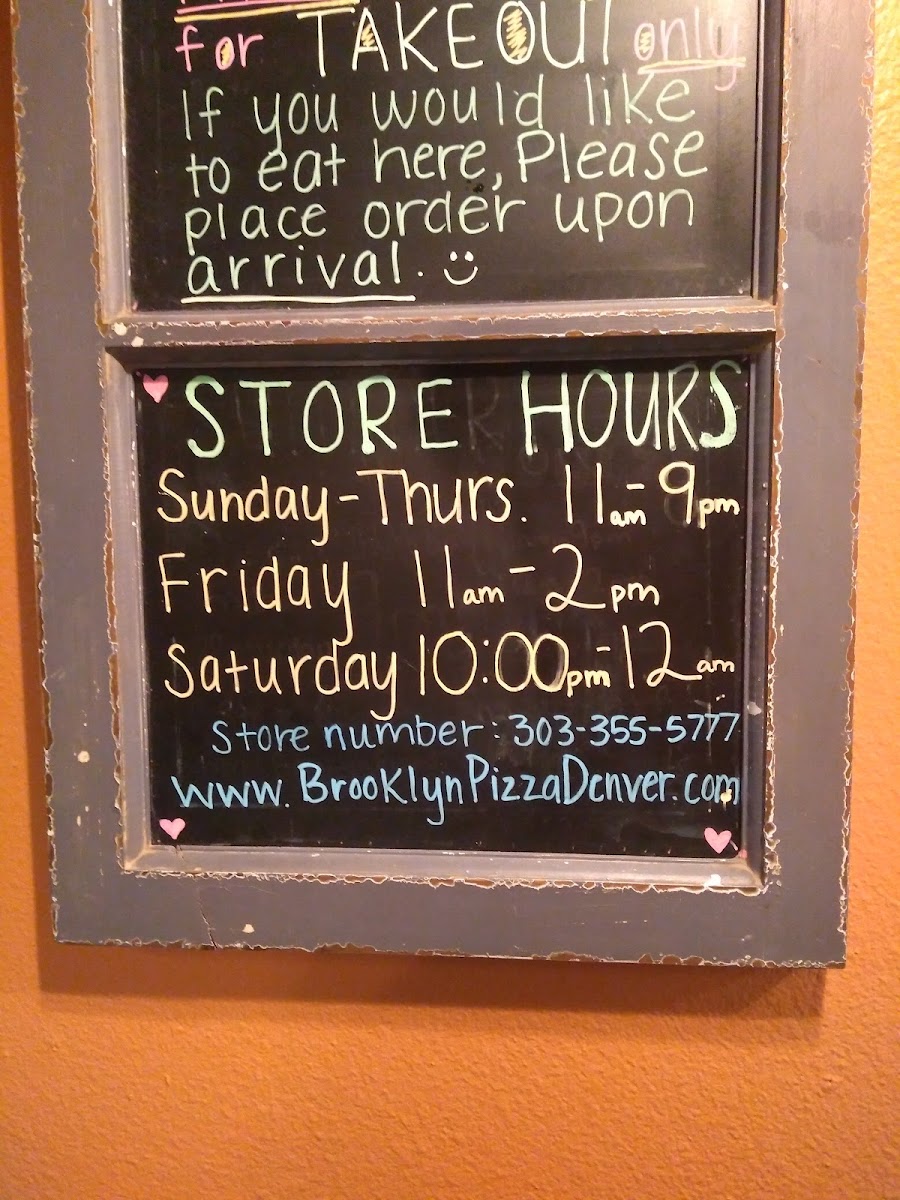 for TAKE OUT only
If you would like
to eat here, Please
place order upon
arrival.
STORE HOURS
Sunday-Thurs. 11am-9pm
Friday 11am-2pm
Saturday 10:00pm-12am
Store number: 303-355-5777
www.BrooklynPizzaDenver.com